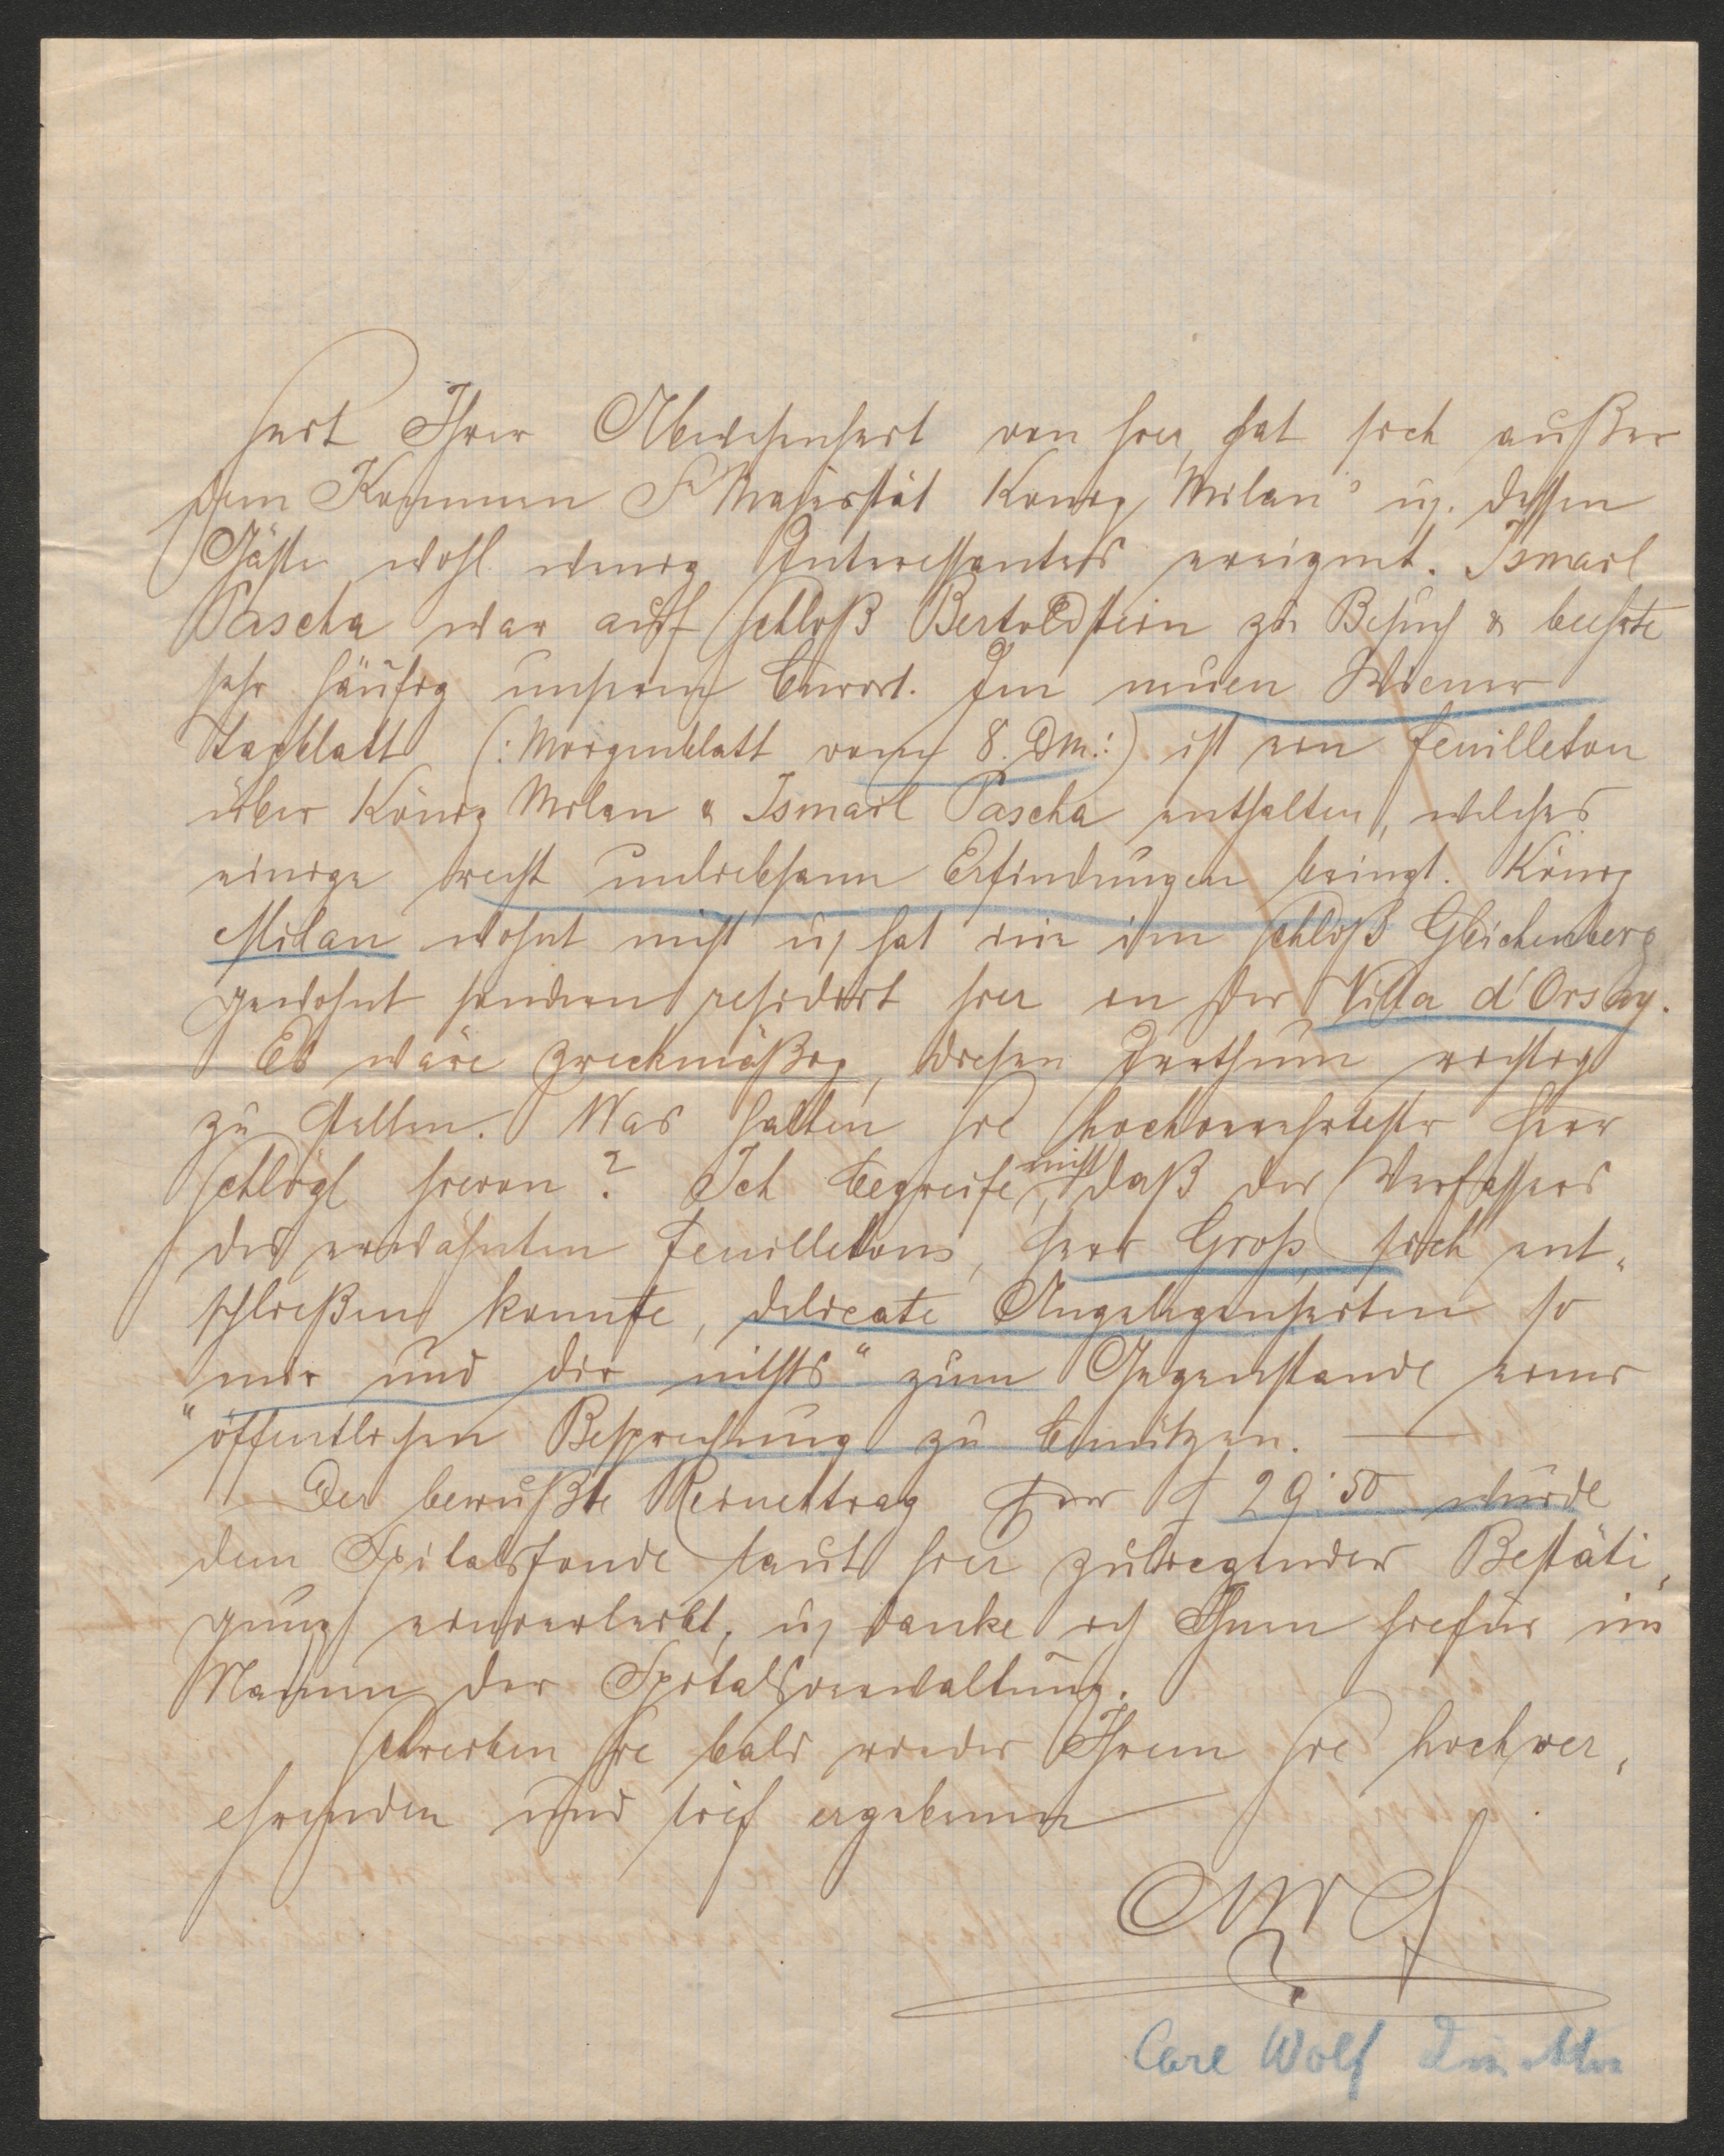 Seit Ihrer Abwesenheit von hier, hat sich außer
dem Kommen Sr Majestät König Milan's u. dessen
Gäste wohl wenig Interessantes ereignet. Ismail
Pascha war auf Schloß Bertoldstein zu Besuch & beehrte
sehr häufig unseren Curort. Im neuen Wiener
Tagblatt (: Morgenblatt vom 8. dM.:) ist ein Feuilleton
über König Milan & Ismail Pascha enthalten, welches
einige recht unliebsame Erfindungen bringt. König
Milan wohnt nicht u. hat nie im Schloß Gleichenberg
gewohnt sondern residirt hier in der Villa d'Orsay.
Es wäre zweckmäßig, diesen Irrthum richtig
zu stellen. Was halten Sie hochverehrtester Herr
Schlögl hievon? Ich begreife nicht, daß der Verfassers
des erwähnten Feuilletons, Herr Groß, sich ent-
schließen konnte, delicate Angelegenheiten so
"mir und dir nichts" zum Gegenstande einer
"öffentlichen Besprechung zu benützen. —
Der bewußte Reinertrag per f 29.50 wurde
dem Spitalsfonde laut hier zuliegender Bestäti-
gung einverleibt, u. danke ich Ihnen hiefür im
Namen der Spitalsverwaltung.
Schreiben Sie bald wieder Ihrem Sie hochver-
ehrenden und tief ergebenen
Carl Wolf Direktor